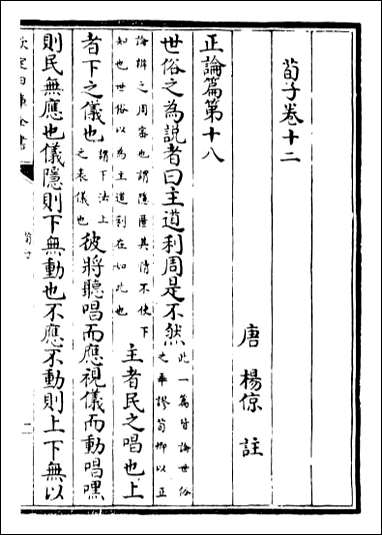 荀子卷十二
唐 楊倞 註
正論篇第十八
世俗之為說者曰主道利周是不然 此一篇皆論世俗之乖謬荀卿以正
論辨之周密也謂隱匿其情不使下知也世俗以為主道利在如此也 主者民之唱也上
者下之儀也 謂下法上之表儀也 彼將聽唱而應視儀而動唱嘿
則民無應也儀隱則下無動也不應不動則上下無以
欽定四庫全書
荀子